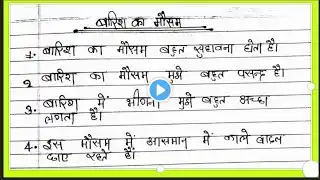 बारिश का मौसम
1. बारिश का मौसम बहुत सुहावना होता है।
2. बारिश का मौसम मुझे बहुत पसन्द है।
3. बारिश में भीगना मुझे बहुत अच्छा
लगता है।
4. इस मौसम में आसमान में काले बादल
छाए रहते हैं।